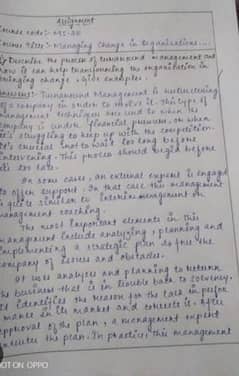 Assignment
Course code:- MS-28
Course Title:- Managing Change in Organisations...
Describe the process of turnaround management and
how it can help transforming the organization in
bringing change. Give examples.
Turnaround Management is restructuring
of a company in order to solve it. This type of
management techniques are used to when the
company is under financial pressure, or when
it's struggling to keep up with the competition.
It's crucial not to wait too long before
intervening. This process should begin before
it's too late.
In some cases, an external expert is engaged
to offer support. In that case this management
is quite similar to interim management or
management coaching.
The most important elements in this
management include analyzing, planning and
implementing a strategic plan to free the
company of issues and obstacles.
It uses analyses and planning to return
the business that is in trouble back to solvency.
It identifies the reason for the lack in perfor
mance in its market and corrects it. After
approval of the plan, a management expert
executes the plan. In practice, this management
SHOT ON OPPO